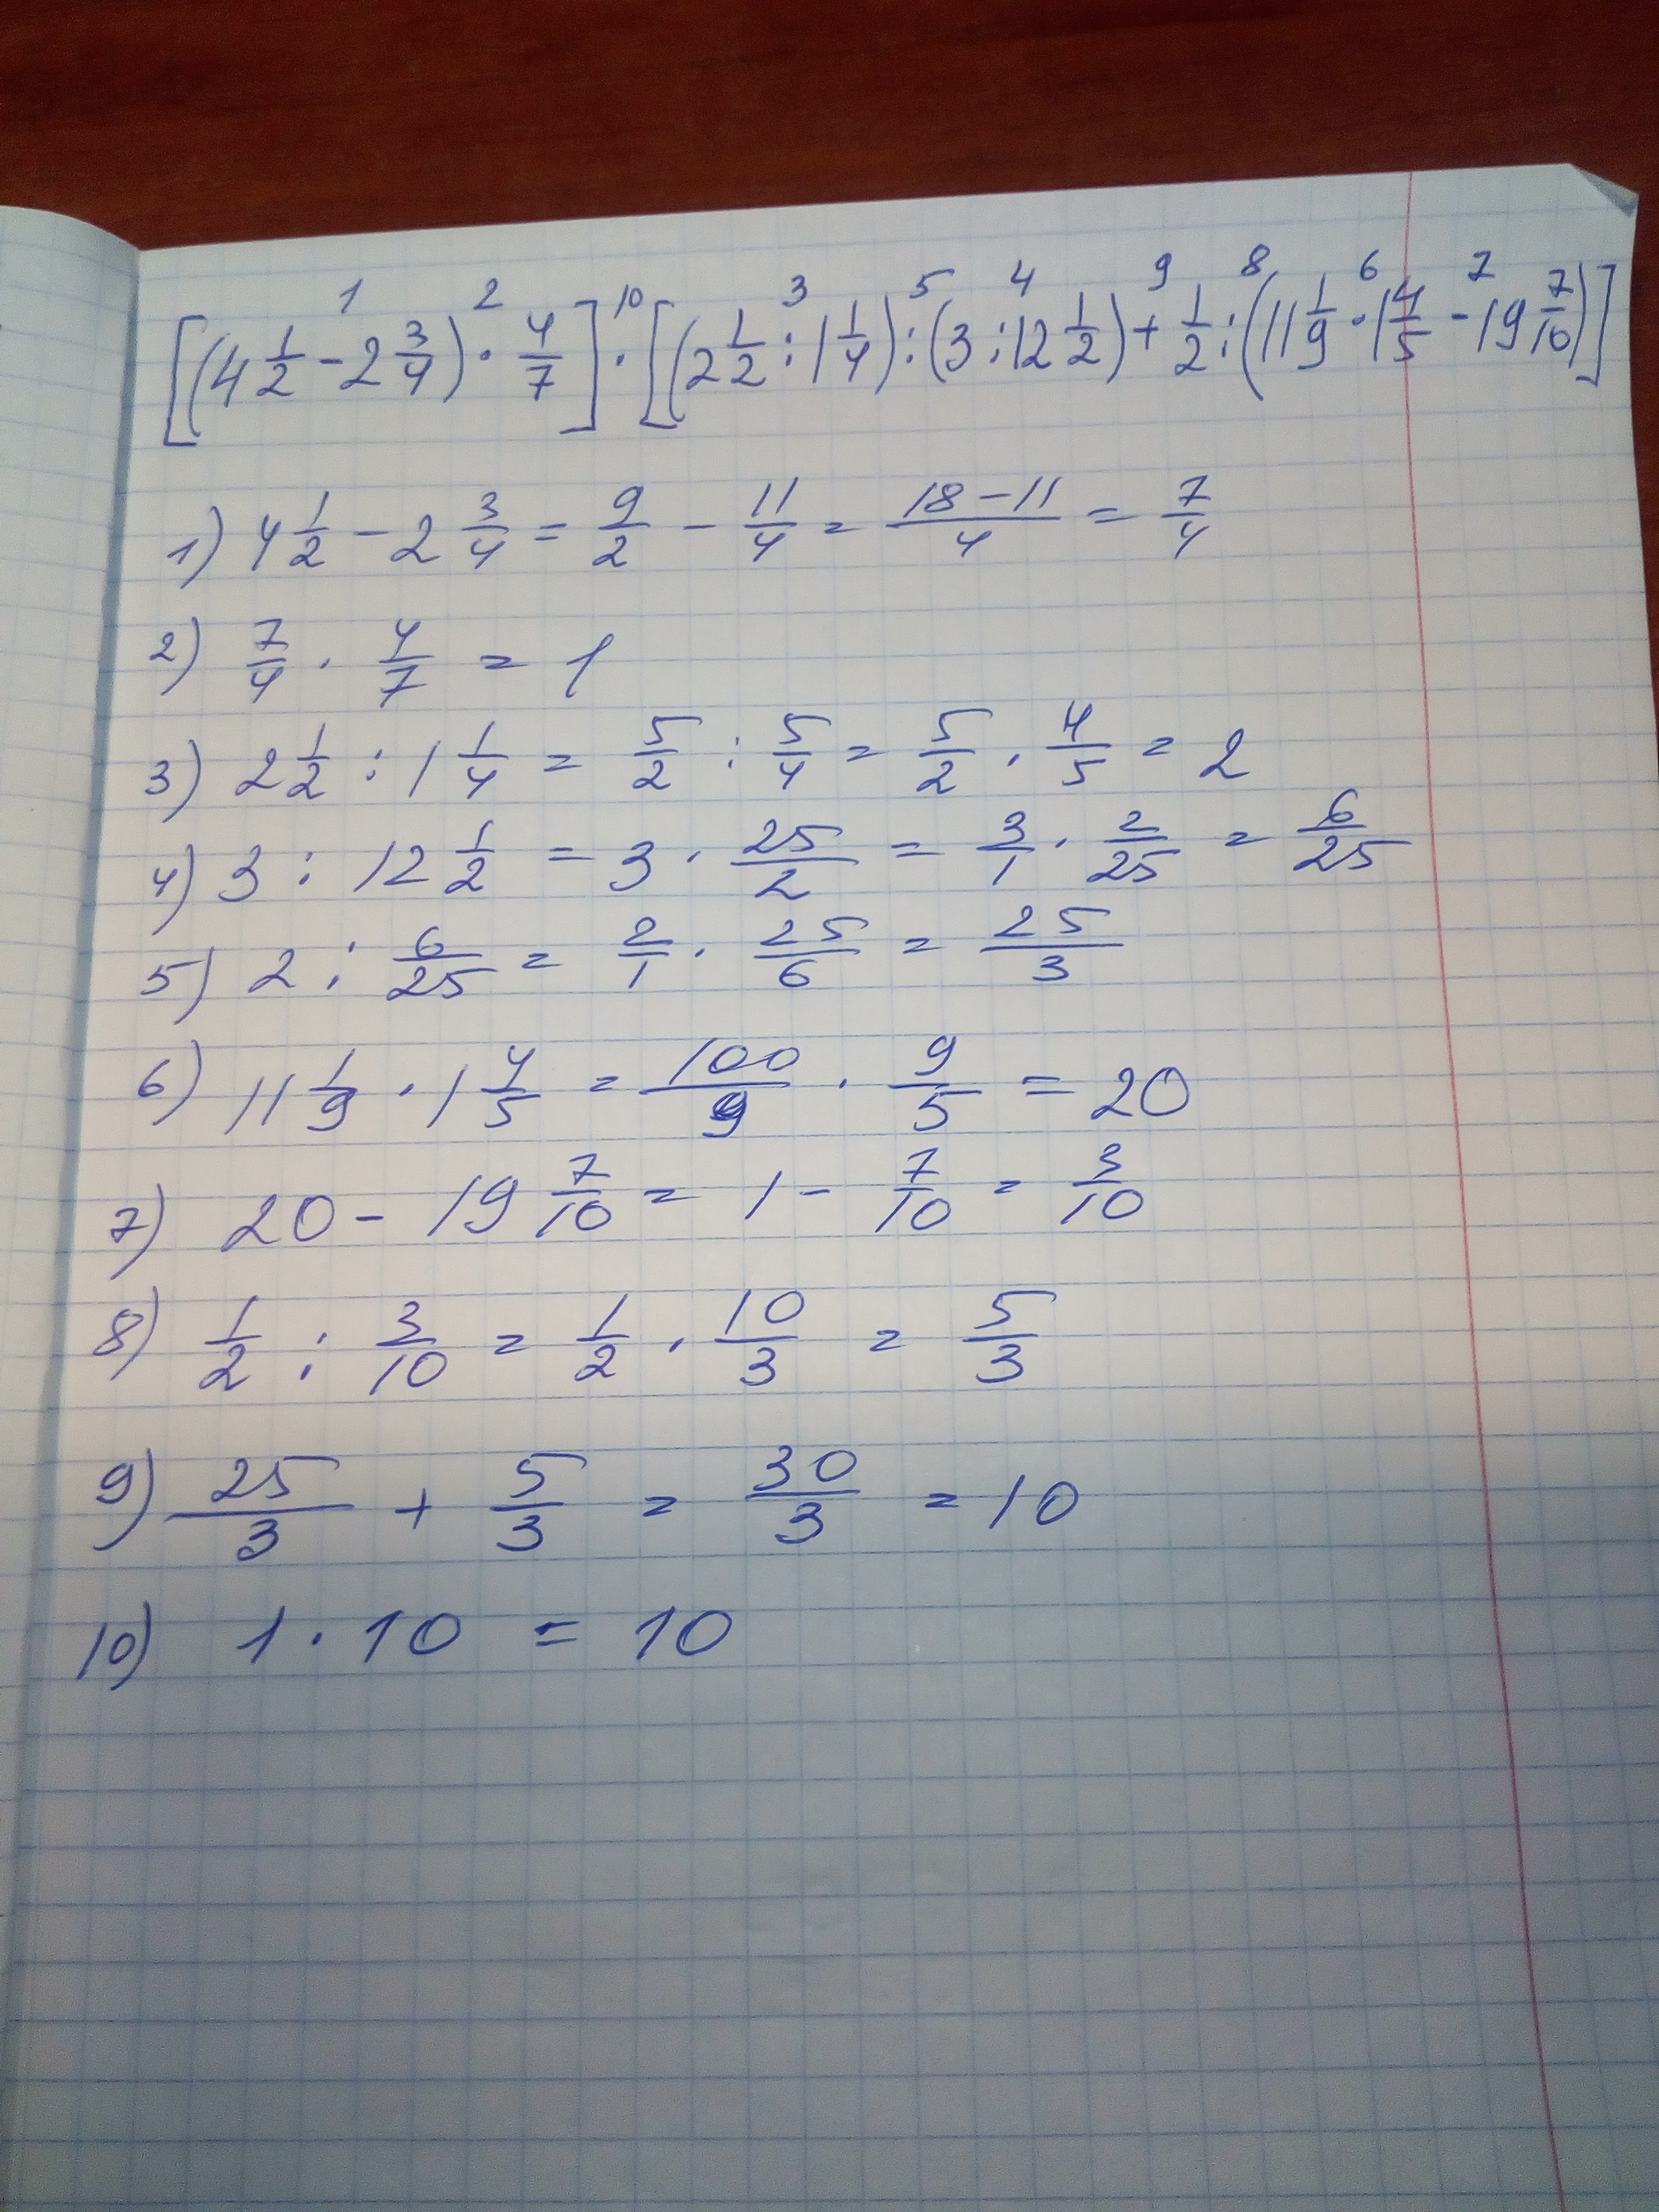 1 2 10 3 5 4 9 8 6 7
[(4 1/2 - 2 3/4) · 4/7] · [(2 1/2 : 1 1/4) : (3 : 12 1/2) + 1/2 : (11 1/9 · 1 4/5 - 19 7/10)]
1) 4 1/2 - 2 3/4 = 9/2 - 11/4 = (18-11)/4 = 7/4
2) 7/4 · 4/7 = 1
3) 2 1/2 : 1 1/4 = 5/2 : 5/4 = 5/2 · 4/5 = 2
4) 3 : 12 1/2 = 3 · 25/2 = 3/1 · 2/25 = 6/25
5) 2 : 6/25 = 2/1 · 25/6 = 25/3
6) 11 1/9 · 1 4/5 = 100/9 · 9/5 = 20
7) 20 - 19 7/10 = 1 - 7/10 = 3/10
8) 1/2 : 3/10 = 1/2 · 10/3 = 5/3
9) 25/3 + 5/3 = 30/3 = 10
10) 1 · 10 = 10